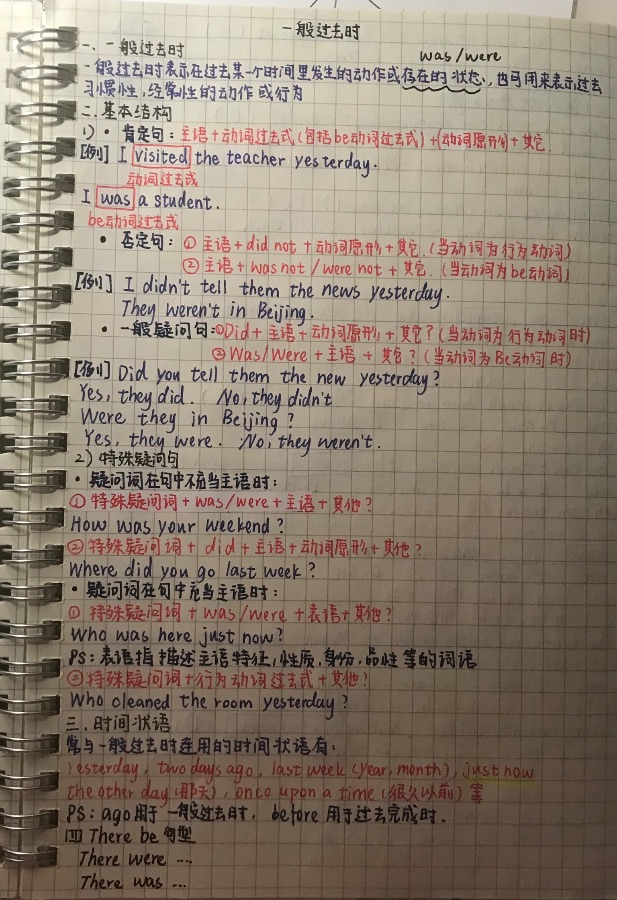 一般过去时
一. 一般过去时
was/were
一般过去时表示在过去某一个时间里发生的动作或存在的状态, 也可用来表示过去
习惯性, 经常性的动作或行为
二. 基本结构
1) • 肯定句: 主语+动词过去式(包括be动词过去式)+(动词原形)+其它.
[例] I visited the teacher yesterday.
动词过去式
I was a student.
be动词过去式
• 否定句: ① 主语+did not+动词原形+其它.(当动词为行为动词)
② 主语+was not/were not+其它.(当动词为be动词)
[例] I didn't tell them the news yesterday.
They weren't in Beijing.
• 一般疑问句:①Did+主语+动词原形+其它?(当动词为行为动词时)
②Was/Were+主语+其它?(当动词为Be动词时)
[例] Did you tell them the new yesterday?
Yes, they did. No, they didn't
Were they in Beijing?
Yes, they were. No, they weren't.
2) 特殊疑问句
• 疑问词在句中不充当主语时:
① 特殊疑问词+was/were+主语+其他?
How was your weekend?
② 特殊疑问词+did+主语+动词原形+其他?
Where did you go last week?
• 疑问词在句中充当主语时:
① 特殊疑问词+was/were+表语+其他?
Who was here just now?
PS: 表语指描述主语特征, 性质, 身份, 品性等的词语
② 特殊疑问词+行为动词过去式+其他?
Who cleaned the room yesterday?
三. 时间状语
常与一般过去时连用的时间状语有:
Yesterday, two days ago, last week (year, month), just now
the other day (那天), once upon a time (很久以前) 等
PS: ago用于一般过去时, before用于过去完成时.
四 There be 句型
There were ...
There was ...